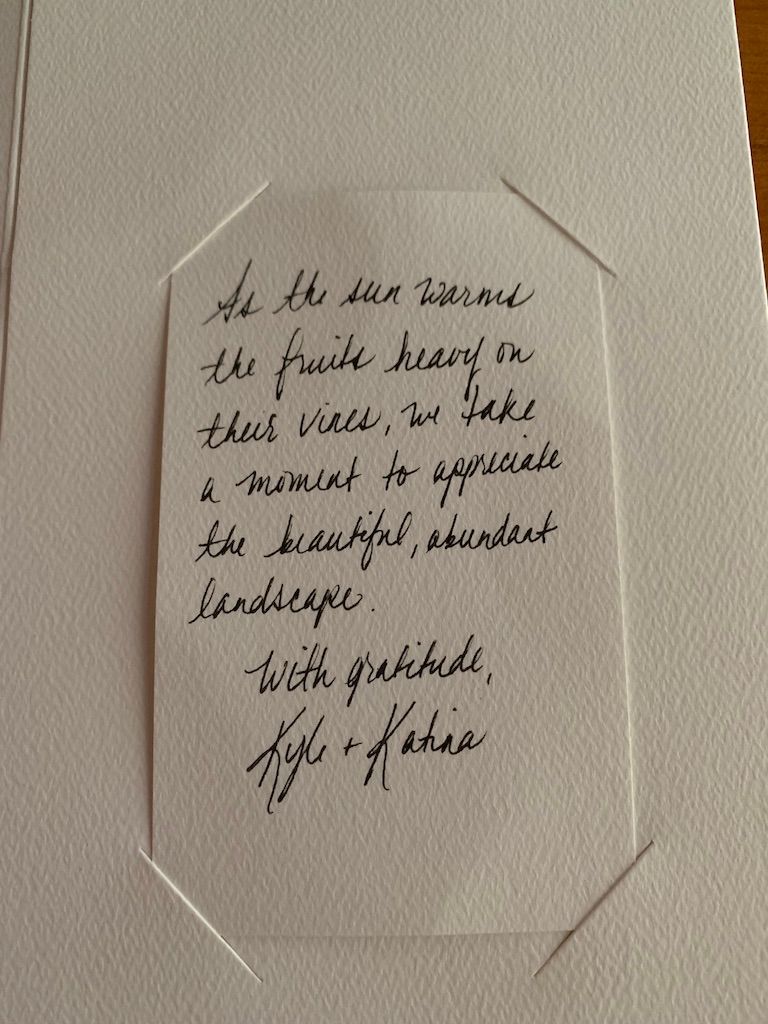 As the sun warms
the fruits heavy on
their vines, we take
a moment to appreciate
the beautiful, abundant
landscape.
With gratitude,
Kyle + Katina